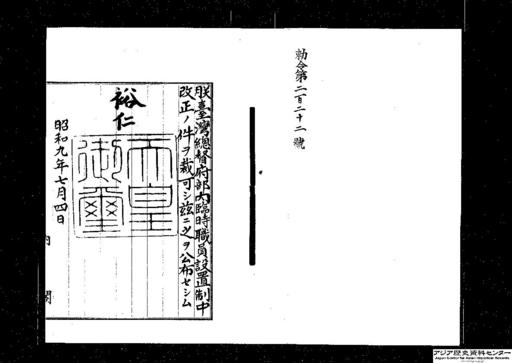 勅令第二百二十二號
朕臺灣總督府部內臨時職員設置制中
改正ノ件ヲ裁可シ玆ニ之ヲ公布セシム
裕仁
天皇
御璽
昭和九年七月四日
內閣
アジア歴史資料センター
Japan Center for Asian Historical Records